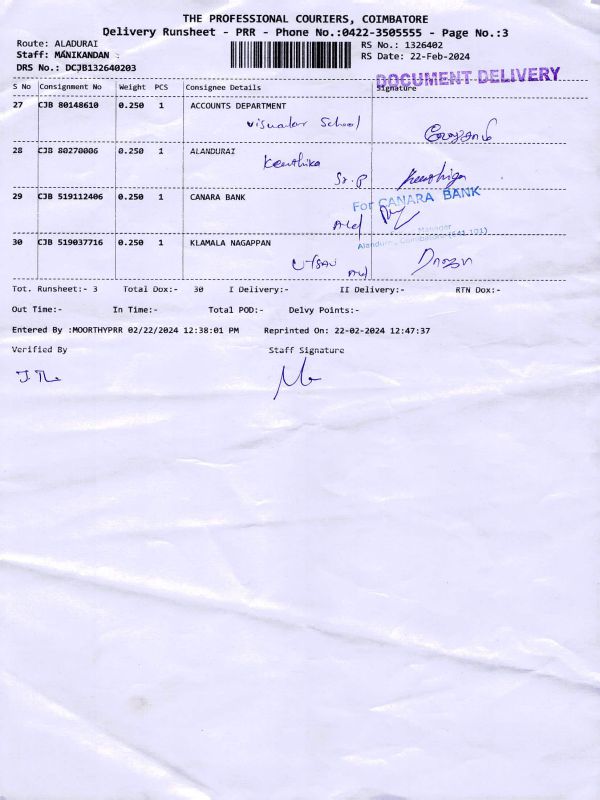 THE PROFESSIONAL COURIERS, COIMBATORE
Delivery Runsheet - PRR - Phone No.:0422-3505555 - Page No.:3
Route: ALADURAI
RS No.: 1326402
Staff: MANIKANDAN
RS Date: 22-Feb-2024
DRS No.: DCJB132640203
DOCUMENT DELIVERY
S No Consignment No Weight PCS Consignee Details Signature
27 CJB 80148610 0.250 1 ACCOUNTS DEPARTMENT
School
28 CJB 80270006 0.250 1 ALANDURAI
Keerthika
Keerthiga
29 CJB 519112406 0.250 1 CANARA BANK
For CANARA BANK
Manager
Alandurai, Coimbatore (641 101)
30 CJB 519037716 0.250 1 KLAMALA NAGAPPAN
Tot. Runsheet:- 3 Total Dox:- 30 I Delivery:- II Delivery:- RTN Dox:-
Out Time:- In Time:- Total POD:- Delvy Points:-
Entered By :MOORTHYPRR 02/22/2024 12:38:01 PM Reprinted On: 22-02-2024 12:47:37
Verified By Staff Signature